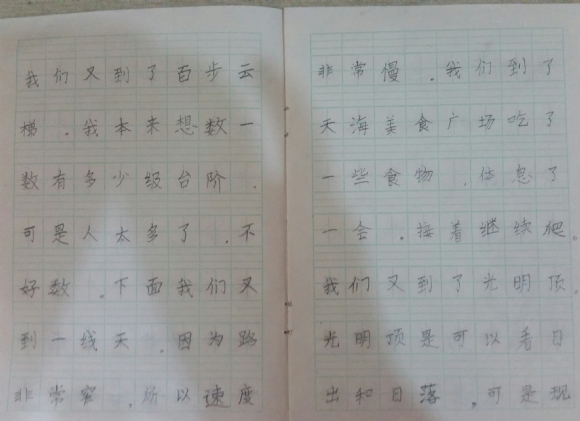 我们又到了百步云
梯。我本来想数一
数有多少级台阶。
可是人太多了。不
好数。下面我们又
到一线天。因为路
非常窄。所以速度
非常慢。我们到了
天海美食广场吃了
一些食物。休息了
一会。接着继续爬。
我们又到了光明顶。
光明顶是可以看日
出和日落。可是现